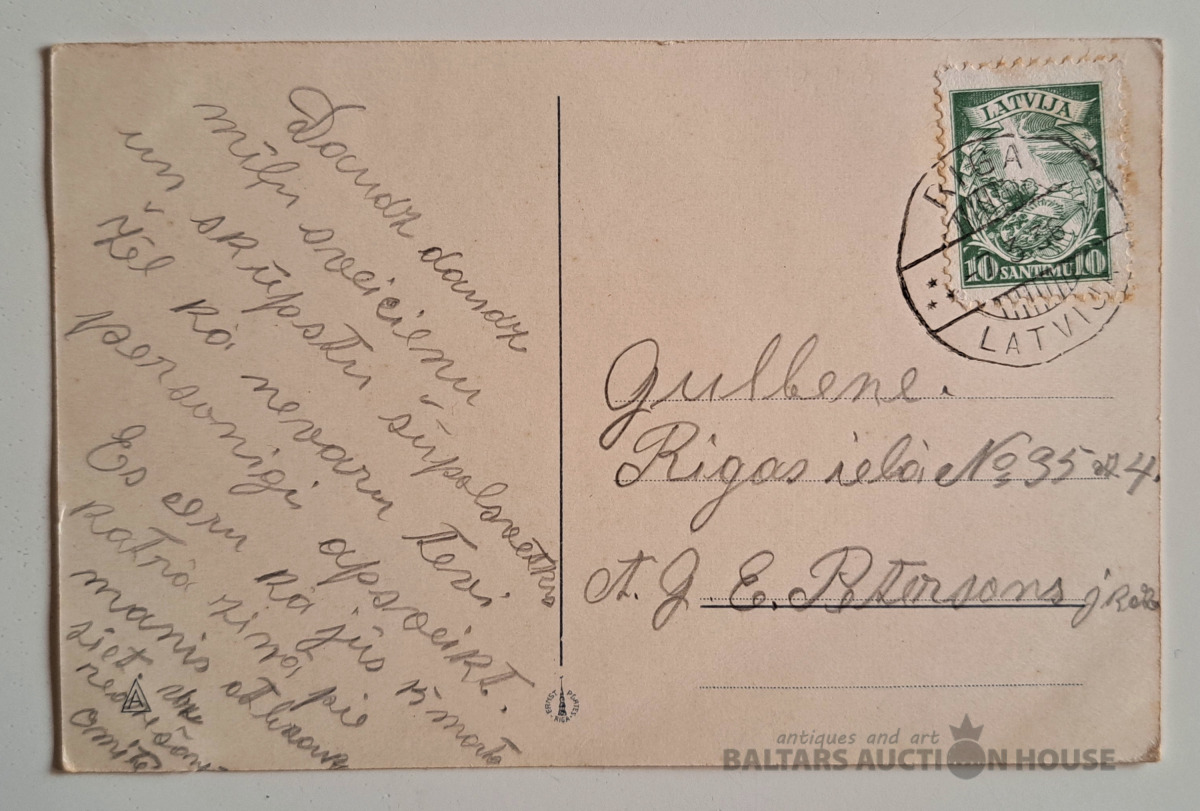 Daudz daudz
mīļu sveicienu
un skūpstu šūpolsvētkos
žēl ka nevaru Tevi
personīgi apsveikt.
Es ceru ka jūs 15 marta
katrā ziņā pie
manis atbrauk
siet
Omīte
LATVIJA
10 SANTIMU 10
RIGA
LATVIJA
Gulbene.
Rigas ielā № 35 4.
A. G. E. Petersons
ERNST PLATES
RIGA
antiques and art
BALTARS AUCTION HOUSE